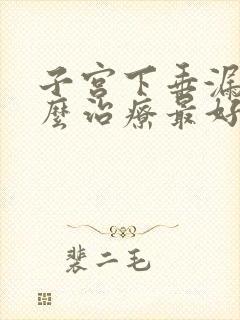 子宫下垂漏
麼治療最好
裴二毛